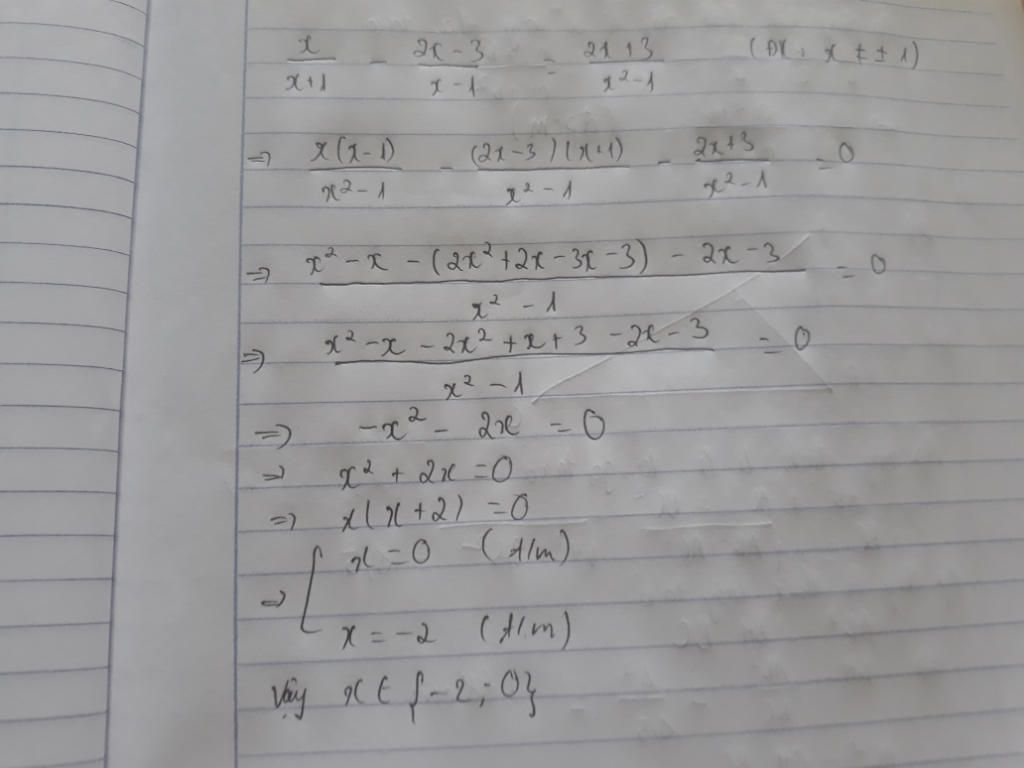 x/(x+1) - (2x-3)/(x-1) = (2x+3)/(x²-1) (ĐK: x ≠ ± 1)
=> x(x-1)/(x²-1) - (2x-3)(x+1)/(x²-1) - (2x+3)/(x²-1) = 0
=> (x² - x - (2x² + 2x - 3x - 3) - 2x - 3)/(x² - 1) = 0
=> (x² - x - 2x² + x + 3 - 2x - 3)/(x² - 1) = 0
=> -x² - 2x = 0
=> x² + 2x = 0
=> x(x+2) = 0
=> [ x = 0 (t/m)
x = -2 (t/m)
Vậy x ∈ {-2; 0}